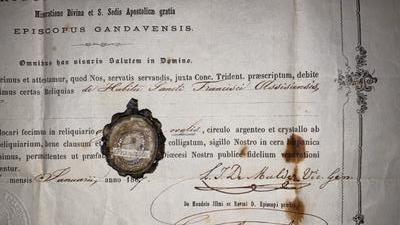 Miseratione Divina et S. Sedis Apostolicæ gratia
EPISCOPUS GANDAVENSIS.
Omnibus has visuris Salutem in Domino.
cimus et attestamur, quod Nos, servatis servandis, juxta Conc. Trident. præscriptum, debite
imus certas Reliquias de Habitu Sancti Francisci Assisiensis,
locari fecimus in reliquiario ovalis, circulo argenteo et crystallo ab
eliquiarium, bene clausum et colligatum, sigillo Nostro in cera hispanica
simus, permittentes ut præfat diœcesi Nostra publice fidelium veneration
mensis Januarii, 186
De Mulder Vic. Gen.
De Mandato Illmi et Revmi D. Episcopi præf